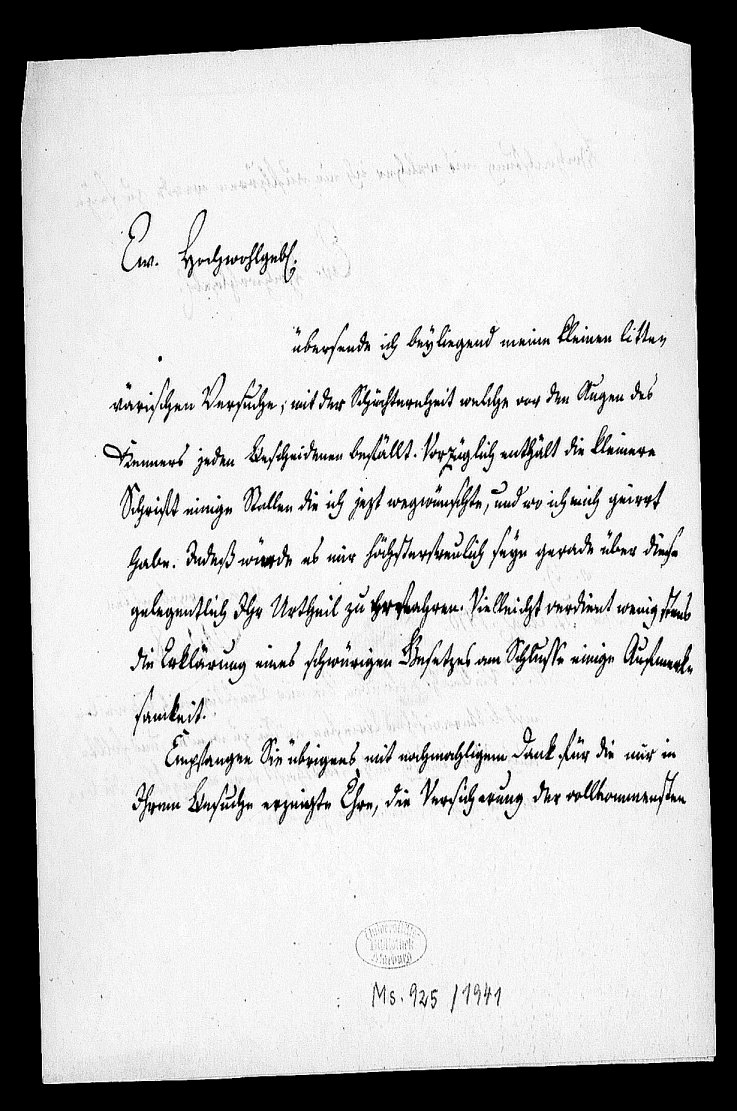 Ew. Hochwohlgeb.
übersende ich beyliegend meine kleinen litte-
rärischen Versuche, mit der Schüchternheit welche vor den Augen des
Kenners jeden Bescheidenen befällt. Vorzüglich enthält die kleinere
Schrift einige Stellen die ich jezt wegwünschte, und wo ich mich geirrt
habe. Indeß würde es mir höchsterfreulich seyn gerade über diese
gelegentlich Ihr Urtheil zu erfahren. Vielleicht verdient wenigstens
die Erklärung eines schwürigen Gesetzes am Schlusse einige Aufmerk-
samkeit.
Empfangen Sie übrigens mit nochmahligem Dank für die mir in
Ihrem Besuche erzeigte Ehre, die Versicherung der vollkommensten
Universitäts-
Bibliothek
Marburg
Ms. 925 / 1941